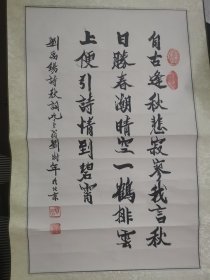 自古逢秋悲寂寥我言秋
日勝春潮晴空一鶴排雲
上便引詩情到碧霄
劉禹錫詩秋詞